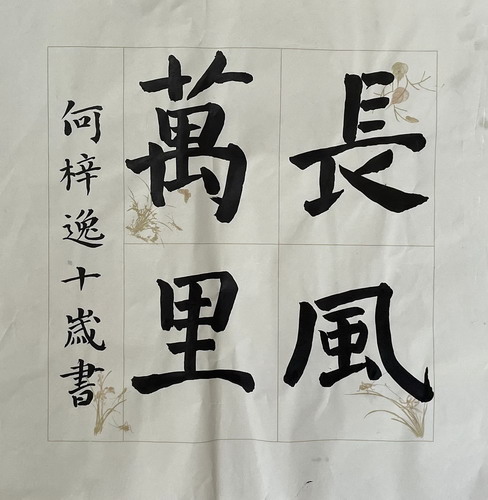 長風
萬里
何梓逸十歲書